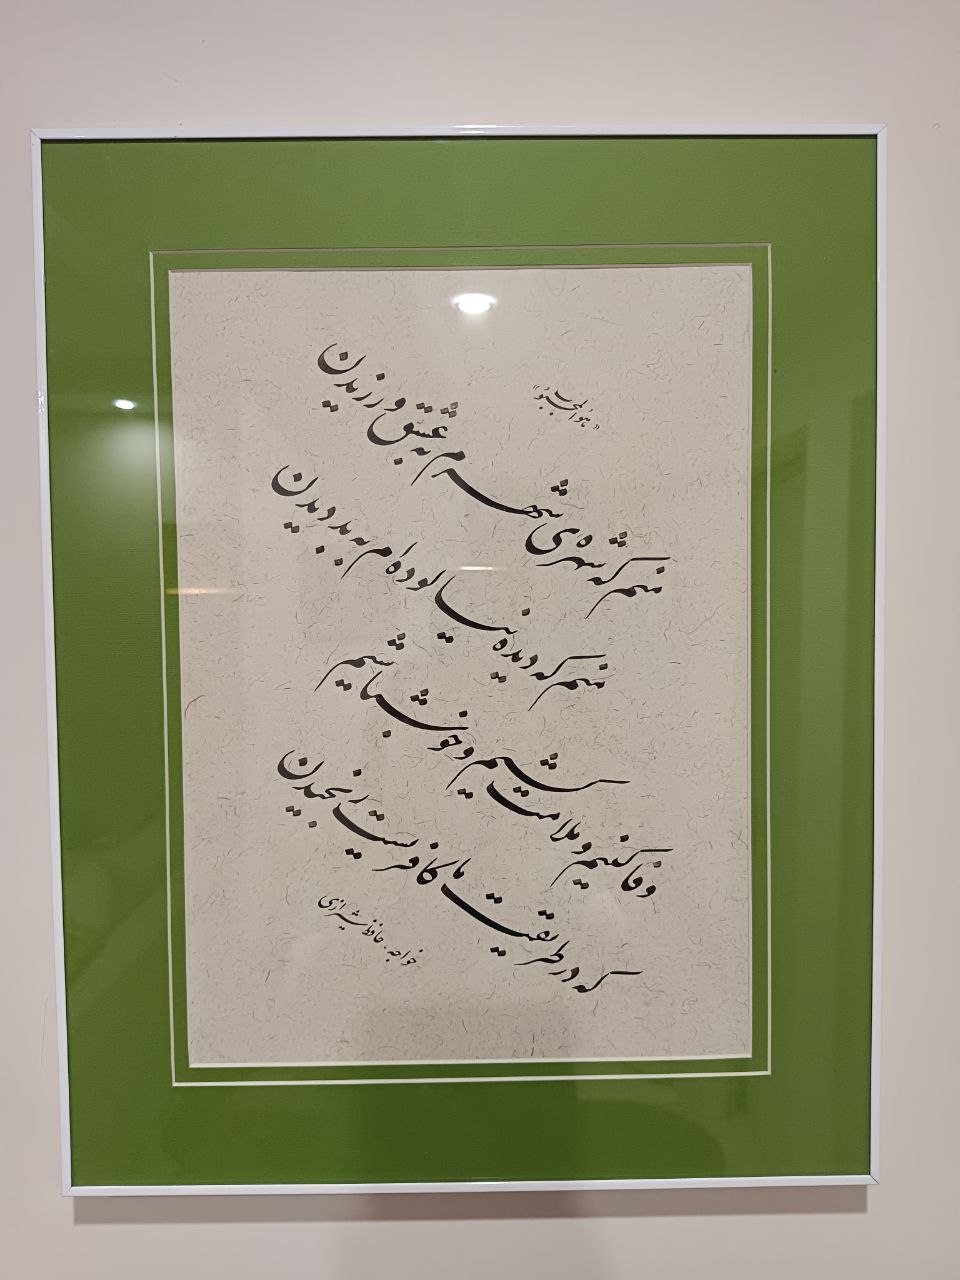 «هُوَالمَحبُوب»
منم که شهره‌ی شهرم به عشق ورزیدن
منم که دیده نیالوده‌ام به بد دیدن
وفا کنیم و ملامت کشیم و خوش باشیم
که در طریقت ما کافریست رنجیدن
خواجه حافظ شیرازی